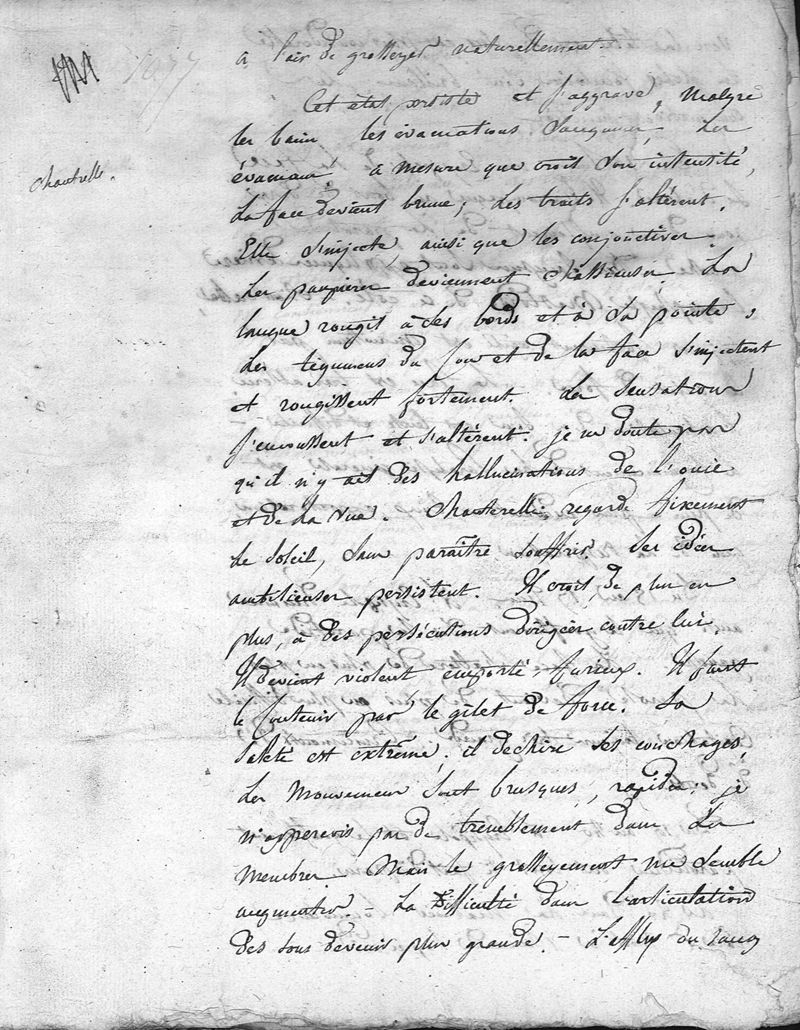 1077
Chanterelle.
a l'air de grasseyer naturellement.
Cet état persiste et s'aggrave, malgré
les bains les évacuations sanguines, les
à mesure que croit son intensité,
La face devient brune, les traits s'altèrent.
Elle s'injecte, ainsi que les conjonctives.
Les paupières deviennent chassieuses, La
langue rougit à ses bords et à sa pointe,
Les tégumens du Cou et de la face s'injectent
et rougissent fortement. Les sensations
s'émoussent et s'altèrent. je ne doute pas
qu'il n'y ait des hallucinations de l'ouie
et de la vue. Chanterelle regarde fixement
le soleil, sans paraître souffrir. Ses idées
ambitieuses persistent. Il croit, de plus en
plus, à des persécutions dirigées contre lui.
Il devient violent emporté, furieux. Il faut
le contenir par le gilet de force. Sa
saleté est extrême, il déchire ses couchages,
Les mouvemens sont brusques, rapides; je
n'apperçois pas de tremblement dans les
membres. Mais le grasseyement me semble
augmenter. - La difficulté dans l'articulation
des sons devenir plus grande. - L'afflux du sang